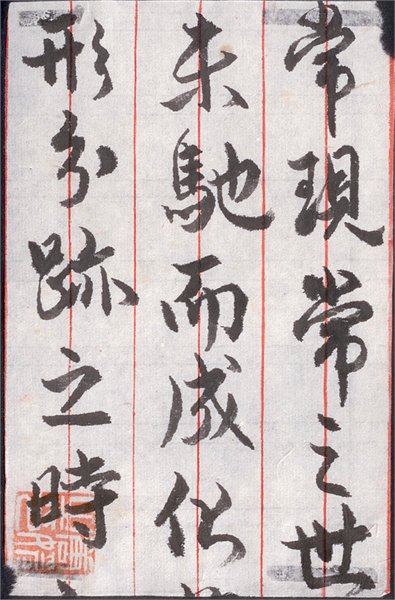 常現常之世
未馳而成化
形分跡之時